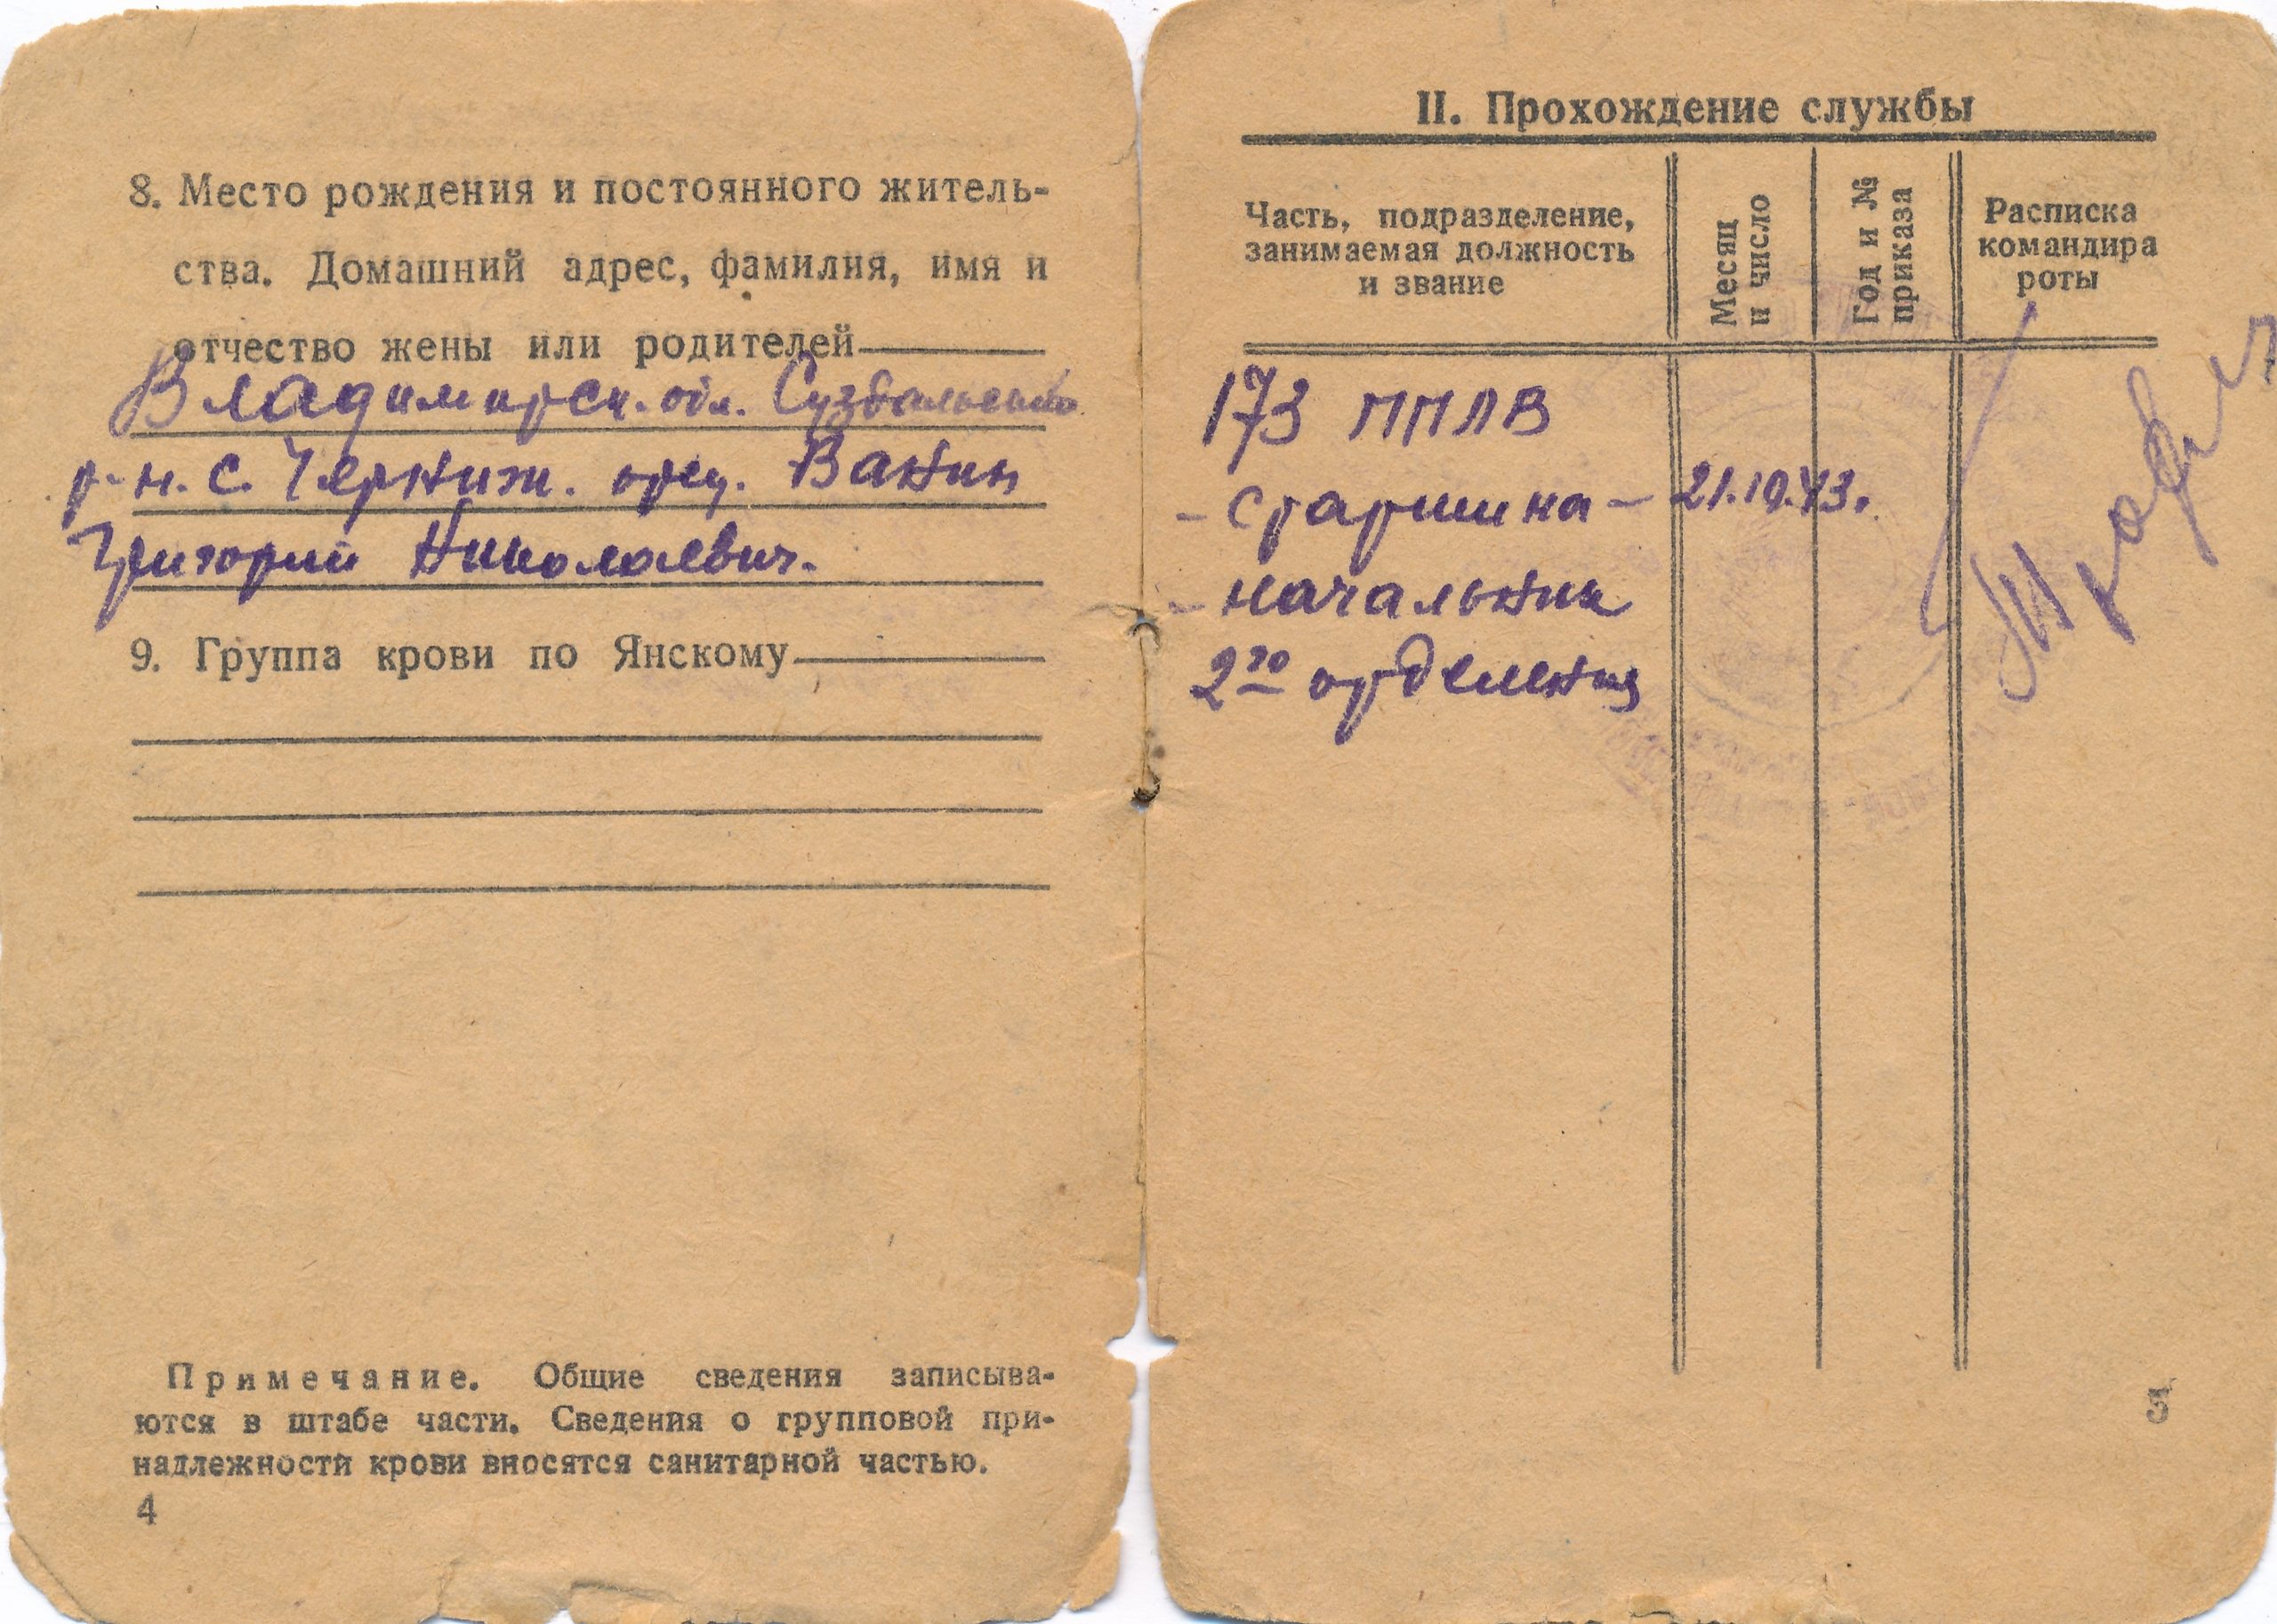 8. Место рождения и постоянного житель-
ства. Домашний адрес, фамилия, имя и
отчество жены или родителей
Владимирск. обл. Суздальский
р-н. с. Черниж. отец. Ванин
Григорий Николаевич.
9. Группа крови по Янскому
Примечание. Общие сведения записыва-
ются в штабе части. Сведения о групповой при-
надлежности крови вносятся санитарной частью.
4
II. Прохождение службы
Часть, подразделение,
занимаемая должность
и звание
Месяц
и число
Год и №
приказа
Расписка
командира
роты
173 ППЛВ
- старшина - 21.10.43.
- начальник
2го отделения
5